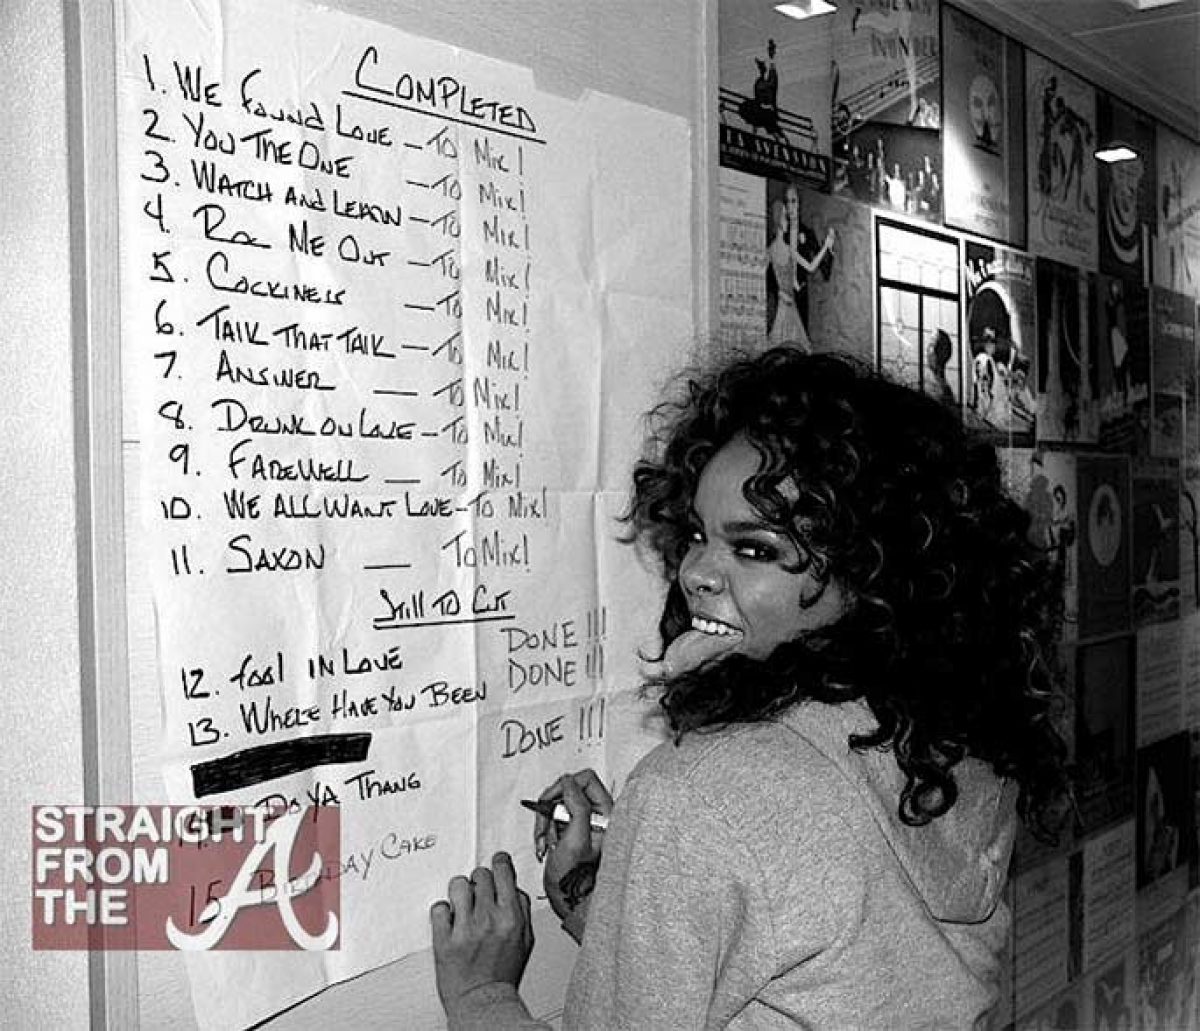 COMPLETED
1. WE FOUND LOVE - TO MIX!
2. YOU THE ONE - TO MIX!
3. WATCH AND LEARN - TO MIX!
4. ROC ME OUT - TO MIX!
5. COCKINESS - TO MIX!
6. TALK THAT TALK - TO MIX!
7. ANSWER - TO MIX!
8. DRUNK ON LOVE - TO MIX!
9. FAREWELL - TO MIX!
10. WE ALL WANT LOVE - TO MIX!
11. SAXON - TO MIX!
Still TO CUT
12. fool IN LOVE DONE!!!
13. WHERE HAVE YOU BEEN DONE!!!
DONE!!!
14. DO YA THANG
15. BIRTHDAY CAKE
STRAIGHT
FROM
THE A
LA AVENIDA